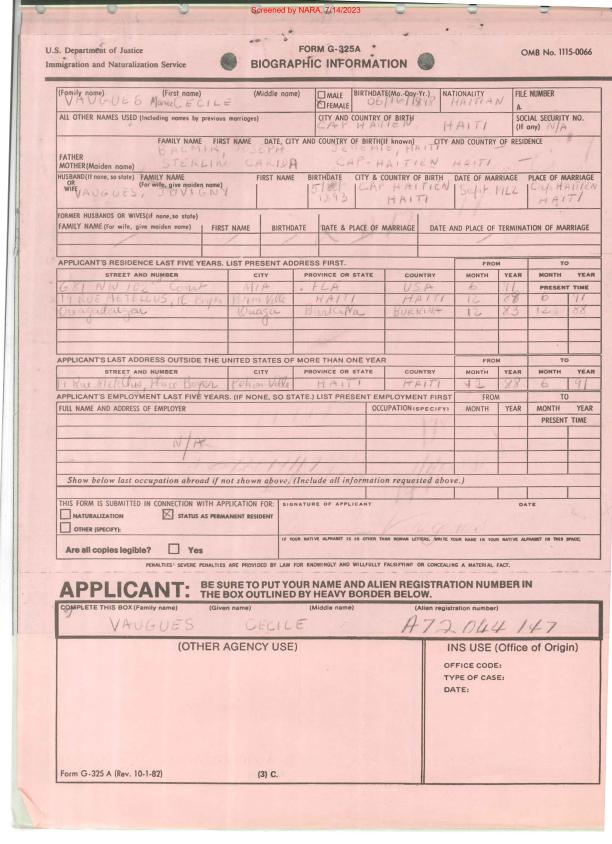 Screened by NARA, 7/14/2023
U.S. Department of Justice
Immigration and Naturalization Service
FORM G-325A
BIOGRAPHIC INFORMATION
OMB No. 1115-0066
(Family name) (First name) (Middle name)
VAUGUES Marie CECILE
MALE
FEMALE
BIRTHDATE(Mo.-Day-Yr.)
NATIONALITY
HAITIAN
FILE NUMBER
A-
ALL OTHER NAMES USED (Including names by previous marriages)
CITY AND COUNTRY OF BIRTH
CAP HAITIEN HAITI
SOCIAL SECURITY NO.
(If any) N/A
FAMILY NAME FIRST NAME DATE, CITY AND COUNTRY OF BIRTH(If known) CITY AND COUNTRY OF RESIDENCE
FATHER JOSEPH JEREMIE, HAITI
MOTHER(Maiden name) STERLIN CARIDA CAP-HAITIEN HAITI —
HUSBAND(If none, so state) OR WIFE
FAMILY NAME (For wife, give maiden name)
FIRST NAME
BIRTHDATE
CITY & COUNTRY OF BIRTH
DATE OF MARRIAGE
PLACE OF MARRIAGE
VAUGUES, 1893 CAP HAITIEN Sept. Cap HAITIEN
HAITI HAITI
FORMER HUSBANDS OR WIVES(if none, so state)
FAMILY NAME (For wife, give maiden name) FIRST NAME BIRTHDATE DATE & PLACE OF MARRIAGE DATE AND PLACE OF TERMINATION OF MARRIAGE
APPLICANT'S RESIDENCE LAST FIVE YEARS. LIST PRESENT ADDRESS FIRST. FROM TO
STREET AND NUMBER CITY PROVINCE OR STATE COUNTRY MONTH YEAR MONTH YEAR
681 NW 102 Court MIA. FLA USA 6 91 PRESENT TIME
11 RUE METELLUS, Pl Boyer Petion Ville HAITI HAITI 12 88 6 91
Ouagadougou Ouaga Burkina BURKINA 12 83 12 88
APPLICANT'S LAST ADDRESS OUTSIDE THE UNITED STATES OF MORE THAN ONE YEAR FROM TO
STREET AND NUMBER CITY PROVINCE OR STATE COUNTRY MONTH YEAR MONTH YEAR
11 Rue Metellus, Place Boyer Petion Ville HAITI HAITI 12 88 6 91
APPLICANT'S EMPLOYMENT LAST FIVE YEARS. (IF NONE, SO STATE.) LIST PRESENT EMPLOYMENT FIRST FROM TO
FULL NAME AND ADDRESS OF EMPLOYER OCCUPATION(SPECIFY) MONTH YEAR MONTH YEAR
PRESENT TIME
N/A
Show below last occupation abroad if not shown above. (Include all information requested above.)
THIS FORM IS SUBMITTED IN CONNECTION WITH APPLICATION FOR:
NATURALIZATION
STATUS AS PERMANENT RESIDENT
OTHER (SPECIFY):
SIGNATURE OF APPLICANT DATE
IF YOUR NATIVE ALPHABET IS IN OTHER THAN ROMAN LETTERS, WRITE YOUR NAME IN YOUR NATIVE ALPHABET IN THIS SPACE:
Are all copies legible? Yes
PENALTIES: SEVERE PENALTIES ARE PROVIDED BY LAW FOR KNOWINGLY AND WILLFULLY FALSIFYING OR CONCEALING A MATERIAL FACT.
APPLICANT: BE SURE TO PUT YOUR NAME AND ALIEN REGISTRATION NUMBER IN
THE BOX OUTLINED BY HEAVY BORDER BELOW.
COMPLETE THIS BOX (Family name) (Given name) (Middle name) (Alien registration number)
VAUGUES CECILE A72 044 147
(OTHER AGENCY USE)
INS USE (Office of Origin)
OFFICE CODE:
TYPE OF CASE:
DATE:
Form G-325 A (Rev. 10-1-82) (3) C.